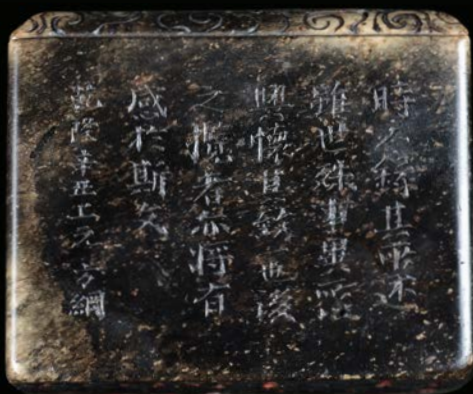 時人錄其所述
雖世殊事異所
興懷其致一也後
之攬者亦將有
感於斯文
乾隆辛丑上元方綱